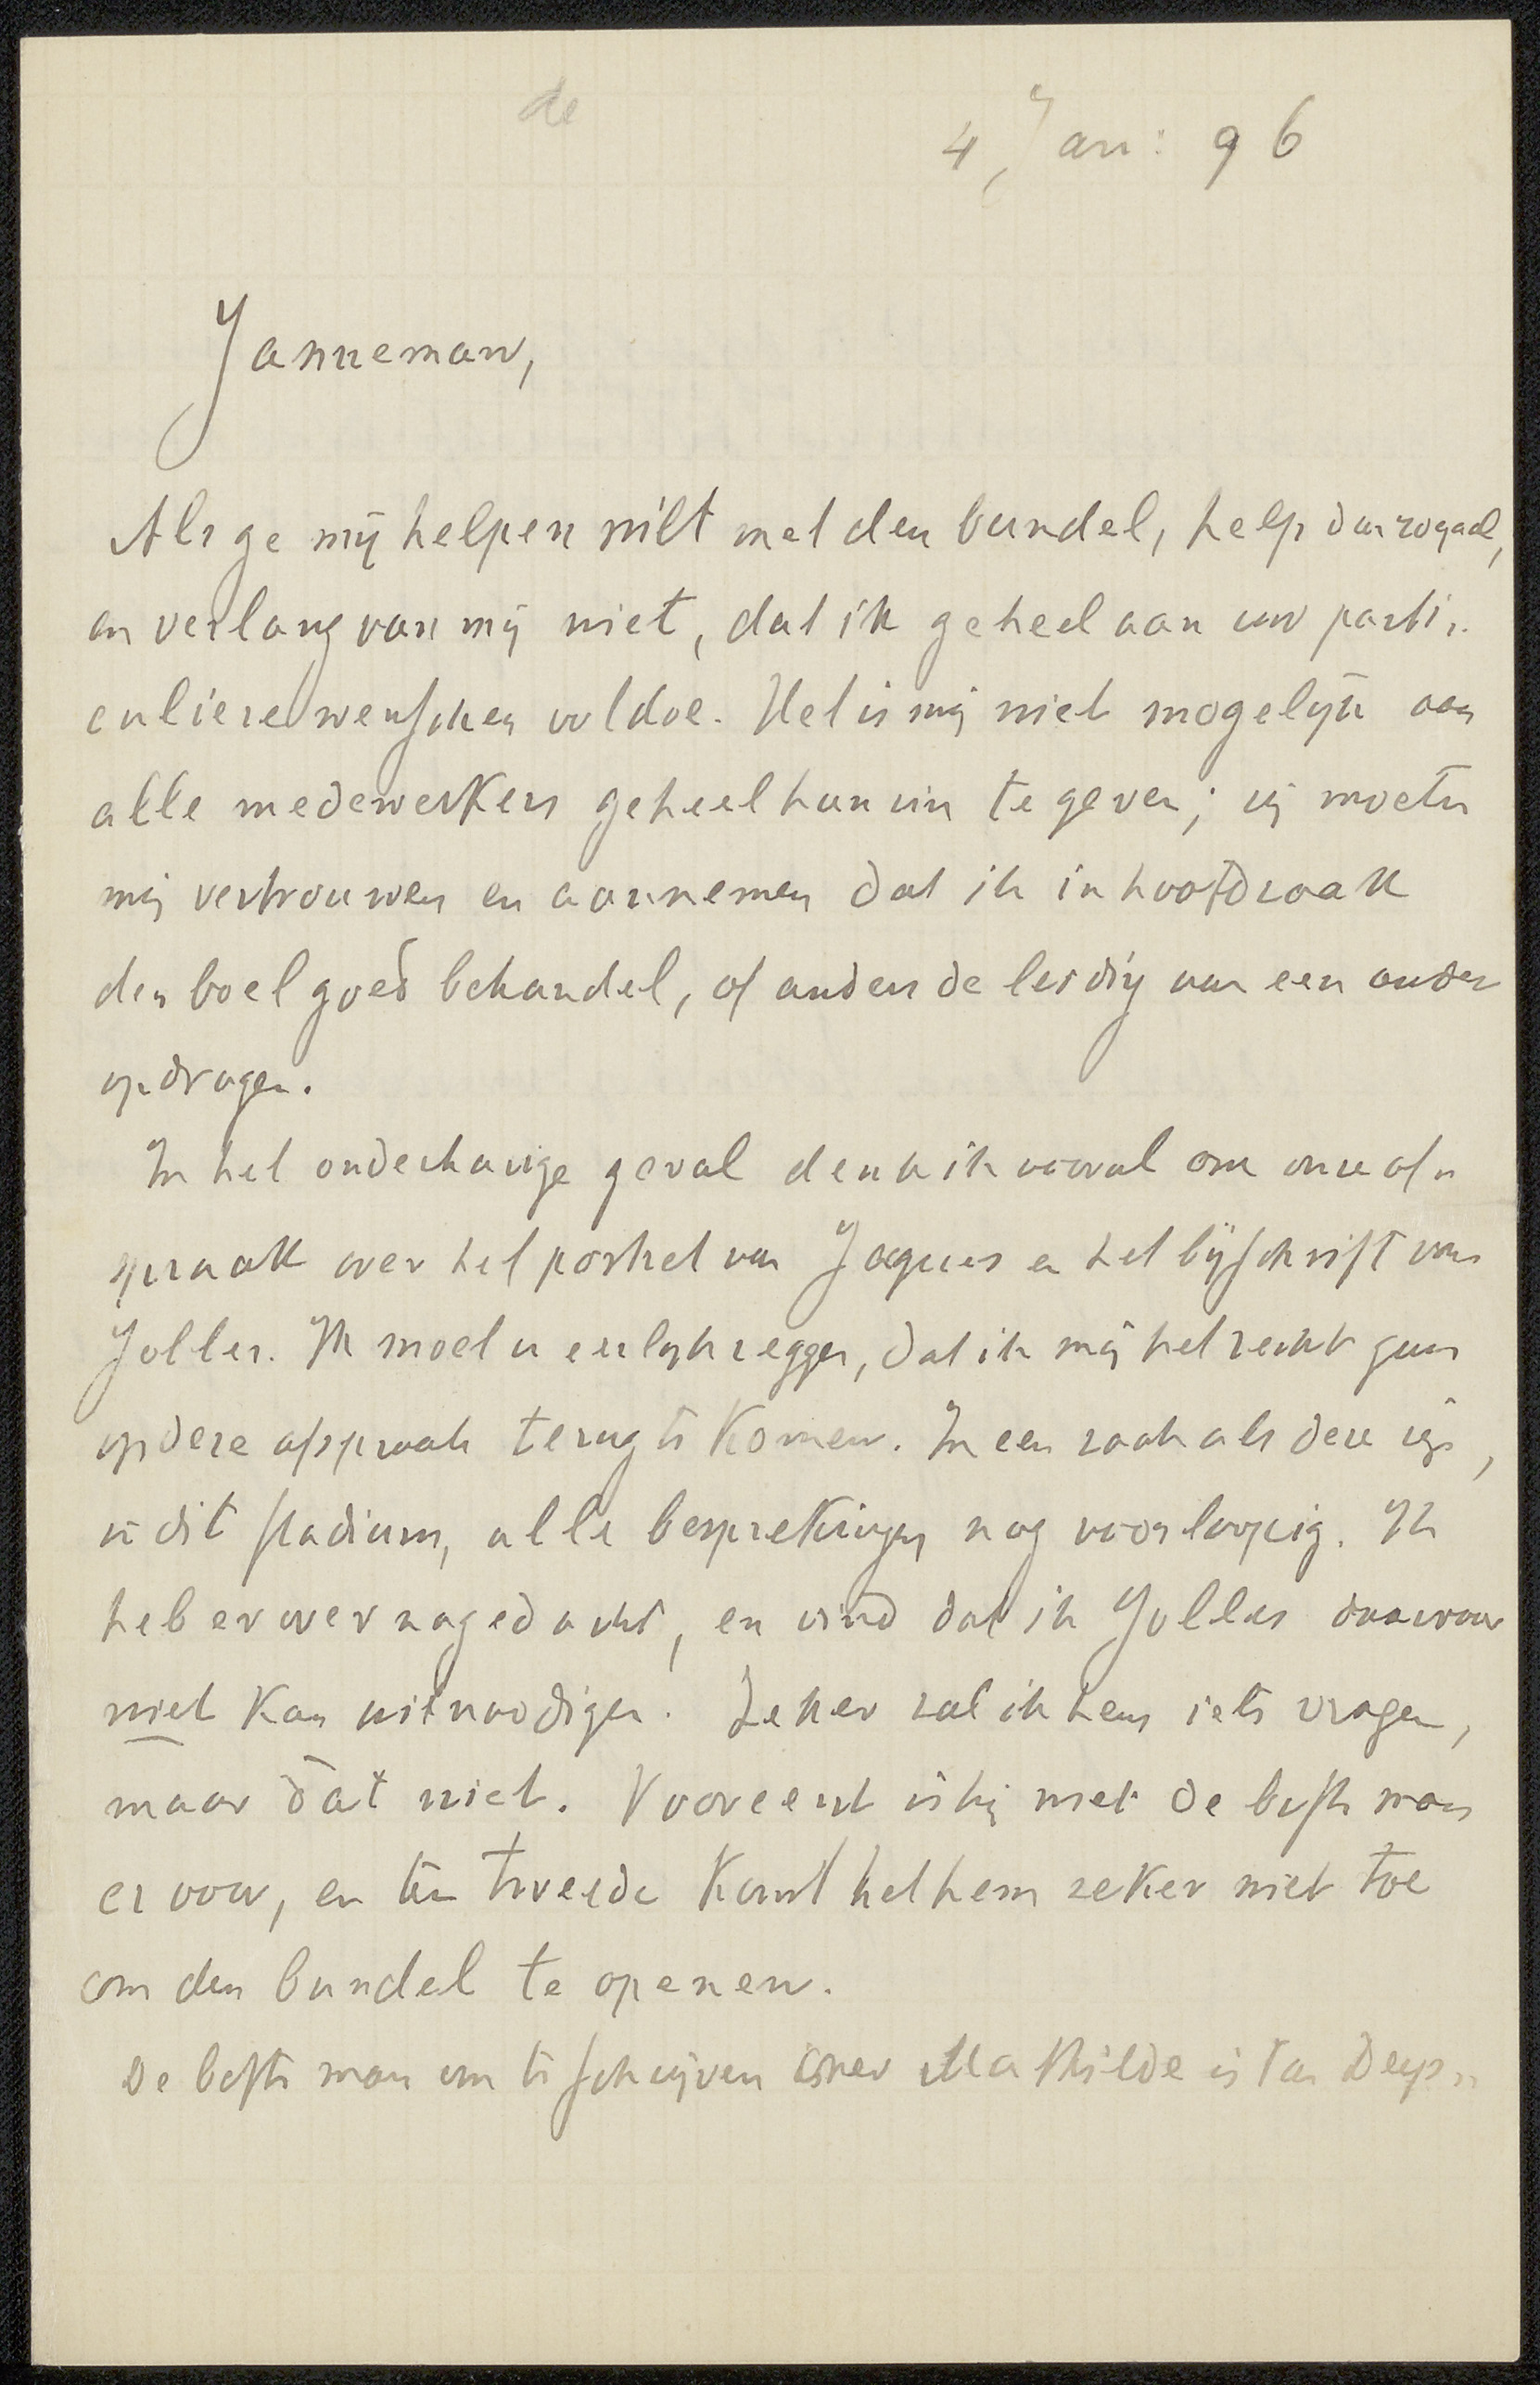 de
4 Jan: 96
Janneman,
Als ge mij helpen wilt met den bundel, help dan royaal,
en verlang van mij niet, dat ik geheel aan uw parti-
culiere wenschen voldoe. Het is mij niet mogelijk aan
alle medewerkers geheel hun zin te geven; zij moeten
mij vertrouwen en aannemen dat ik in hoofdzaak
den boel goed behandel, of anders de leiding aan een ander
opdragen.
In het onderhavige geval denk ik vooral om onze af-
spraak over het portret van Jaques en het bijschrift van
Jolles. Ik moet u eerlijk zeggen, dat ik mij het recht gun
op deze afspraak terug te komen. In een zaak als deze zijn,
in dit stadium, alle besprekingen nog voorloopig. Ik
heb er over nagedacht, en vind dat ik Jolles daarvoor
niet kan uitnoodigen. Zeker zal ik hem iets vragen,
maar dat niet. Vooreerst is hij niet de beste man
er voor, en ten tweede komt het hem zeker niet toe
om den bundel te openen.
De beste man om te schrijven over Mathilde is van Deys-